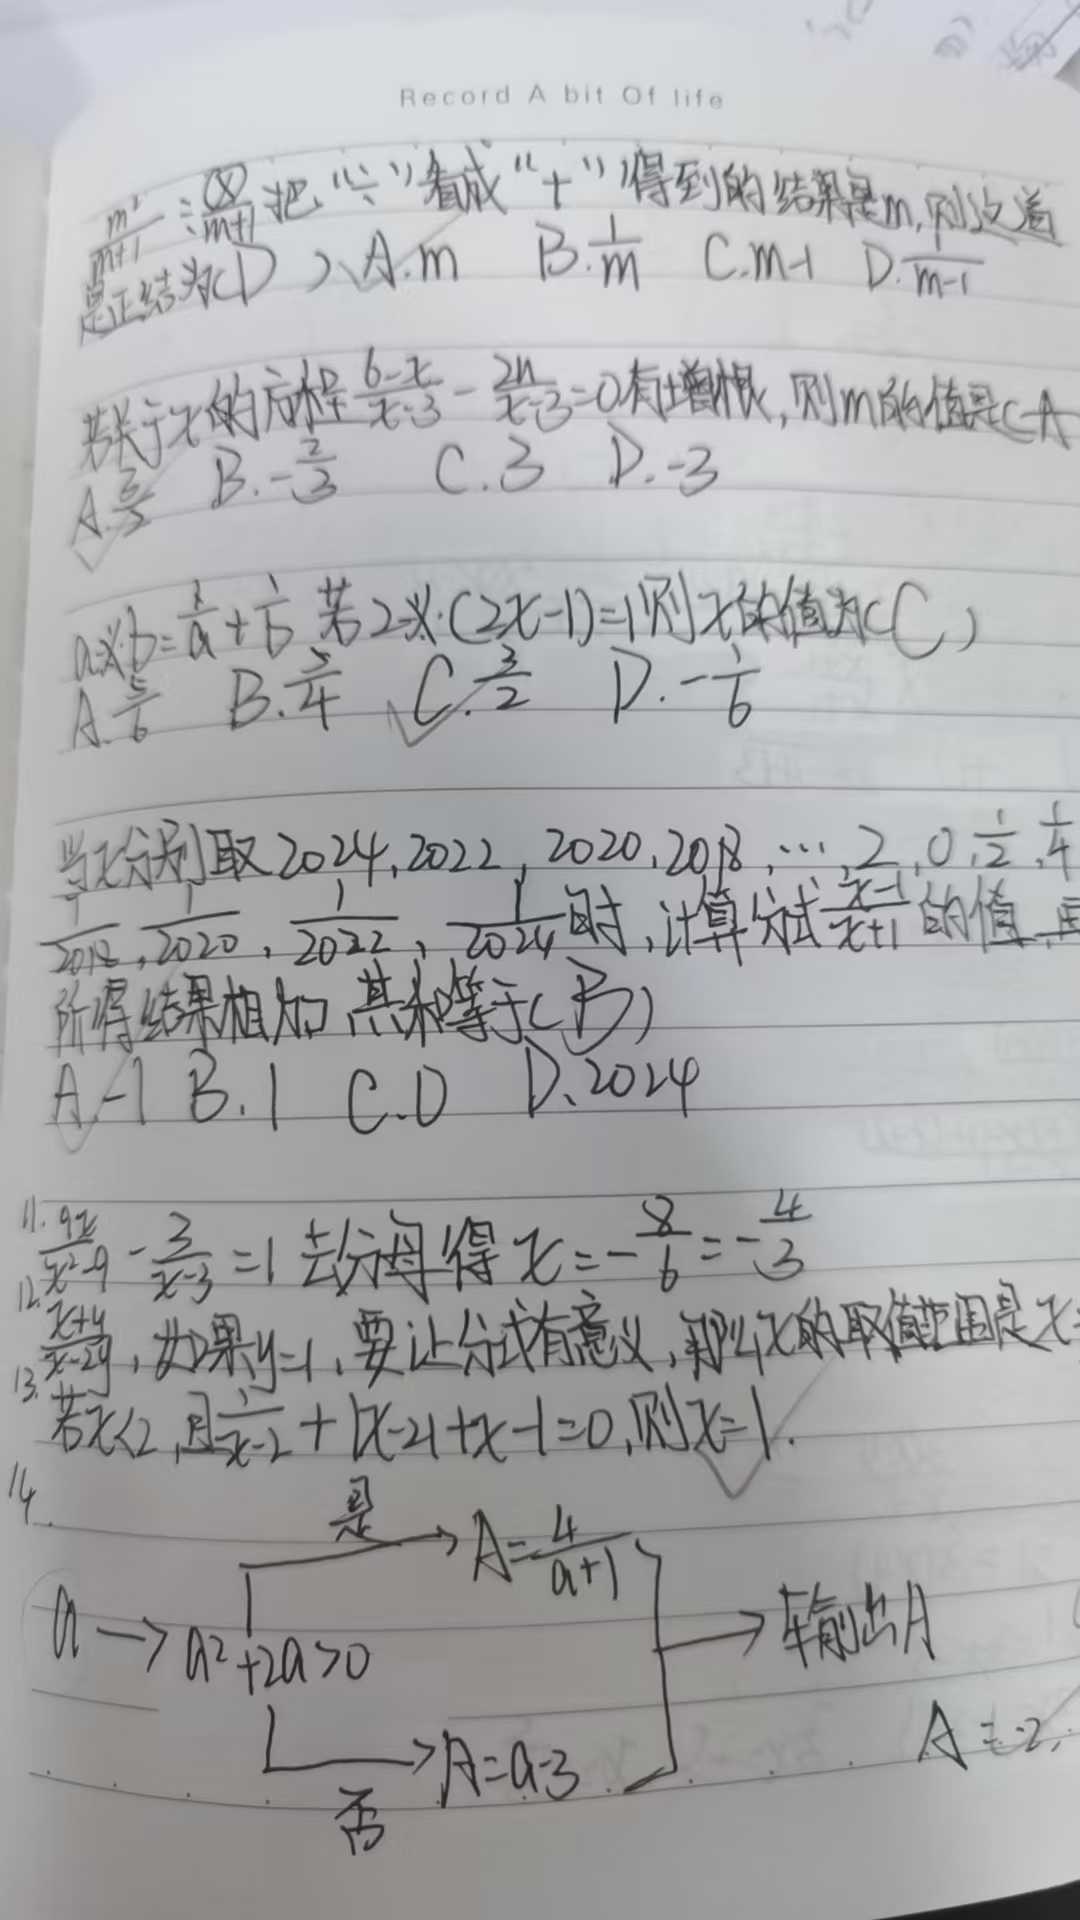 Record A bit Of life
m²/(m+1) ÷ ⊗/(m+1) 把“÷”看成“+”得到的结果是m,则这道
是正结为(D) A.m B.1/m C.m-1 D.1/(m-1)
若关于x的方程 (6-x)/(x-3) - 2m/(x-3) =0有增根,则m的值是(A
A.3/2 B.-2/3 C.3 D.-3
a※b=1/a+1/b 若2※(2x-1)=1则x的值为(C)
A.5/6 B.5/4 C.3/2 D.-1/6
当x分别取2024,2022,2020,2018,…,2,0,1/2,1/4
1/2018,1/2020,1/2022,1/2024时,计算分式(x-1)/(x+1)的值,再
所得结果相加,其和等于(B)
A.-1 B.1 C.0 D.2024
11. 9x/(x²-9) - 3/(x-3) =1 去分母得 x=-8/6=-4/3
12. (x+y)/(x-2y),如果y=1,要让分式有意义,那么x的取值范围是x
13. 若x<2,且1/(x-2)+|x-2|+x-1=0,则x=1.
14.
是
A=4/(a+1)
a → a²+2a>0
→ 输出A
A=a-3
否
A=-2,